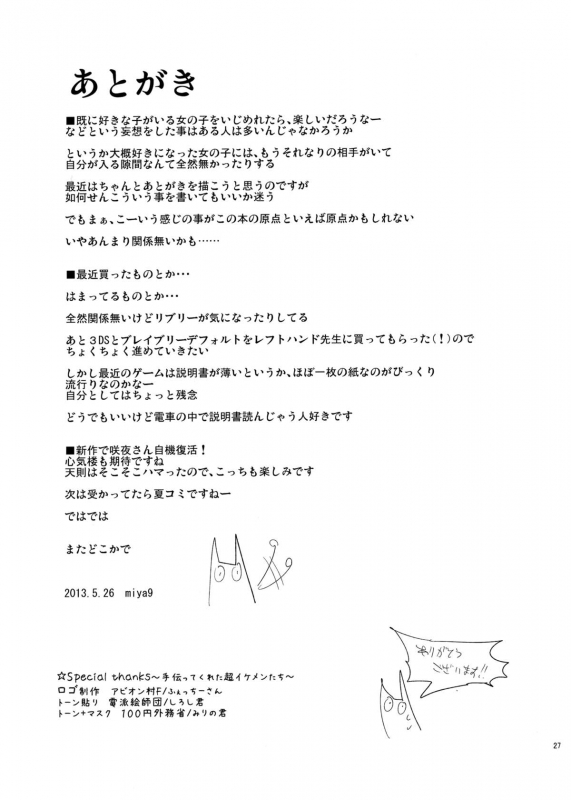 あとがき
■既に好きな子がいる女の子をいじめれたら、楽しいだろうなー
などという妄想をした事はある人は多いんじゃなかろうか
というか大概好きになった女の子には、もうそれなりの相手がいて
自分が入る隙間なんて全然無かったりする
最近はちゃんとあとがきを描こうと思うのですが
如何せんこういう事を書いてもいいか迷う
でもまぁ、こーいう感じの事がこの本の原点といえば原点かもしれない
いやあんまり関係無いかも……
■最近買ったものとか・・・
はまってるものとか・・・
全然関係無いけどリブリーが気になったりしてる
あと3DSとブレイブリーデフォルトをレフトハンド先生に買ってもらった(!)ので
ちょくちょく進めていきたい
しかし最近のゲームは説明書が薄いというか、ほぼ一枚の紙なのがびっくり
流行りなのかなー
自分としてはちょっと残念
どうでもいいけど電車の中で説明書読んじゃう人好きです
■新作で咲夜さん自機復活!
心気楼も期待ですね
天則はそこそこハマったので、こっちも楽しみです
次は受かってたら夏コミですねー
ではでは
またどこかで
2013.5.26 miya9
ありがとう
ございます!!
☆Special thanks~手伝ってくれた超イケメンたち~
ロゴ制作 アビオン村F/ふぇっちーさん
トーン貼り 電派絵師団/しろし君
トーン+マスク 100円外務省/みりの君
27